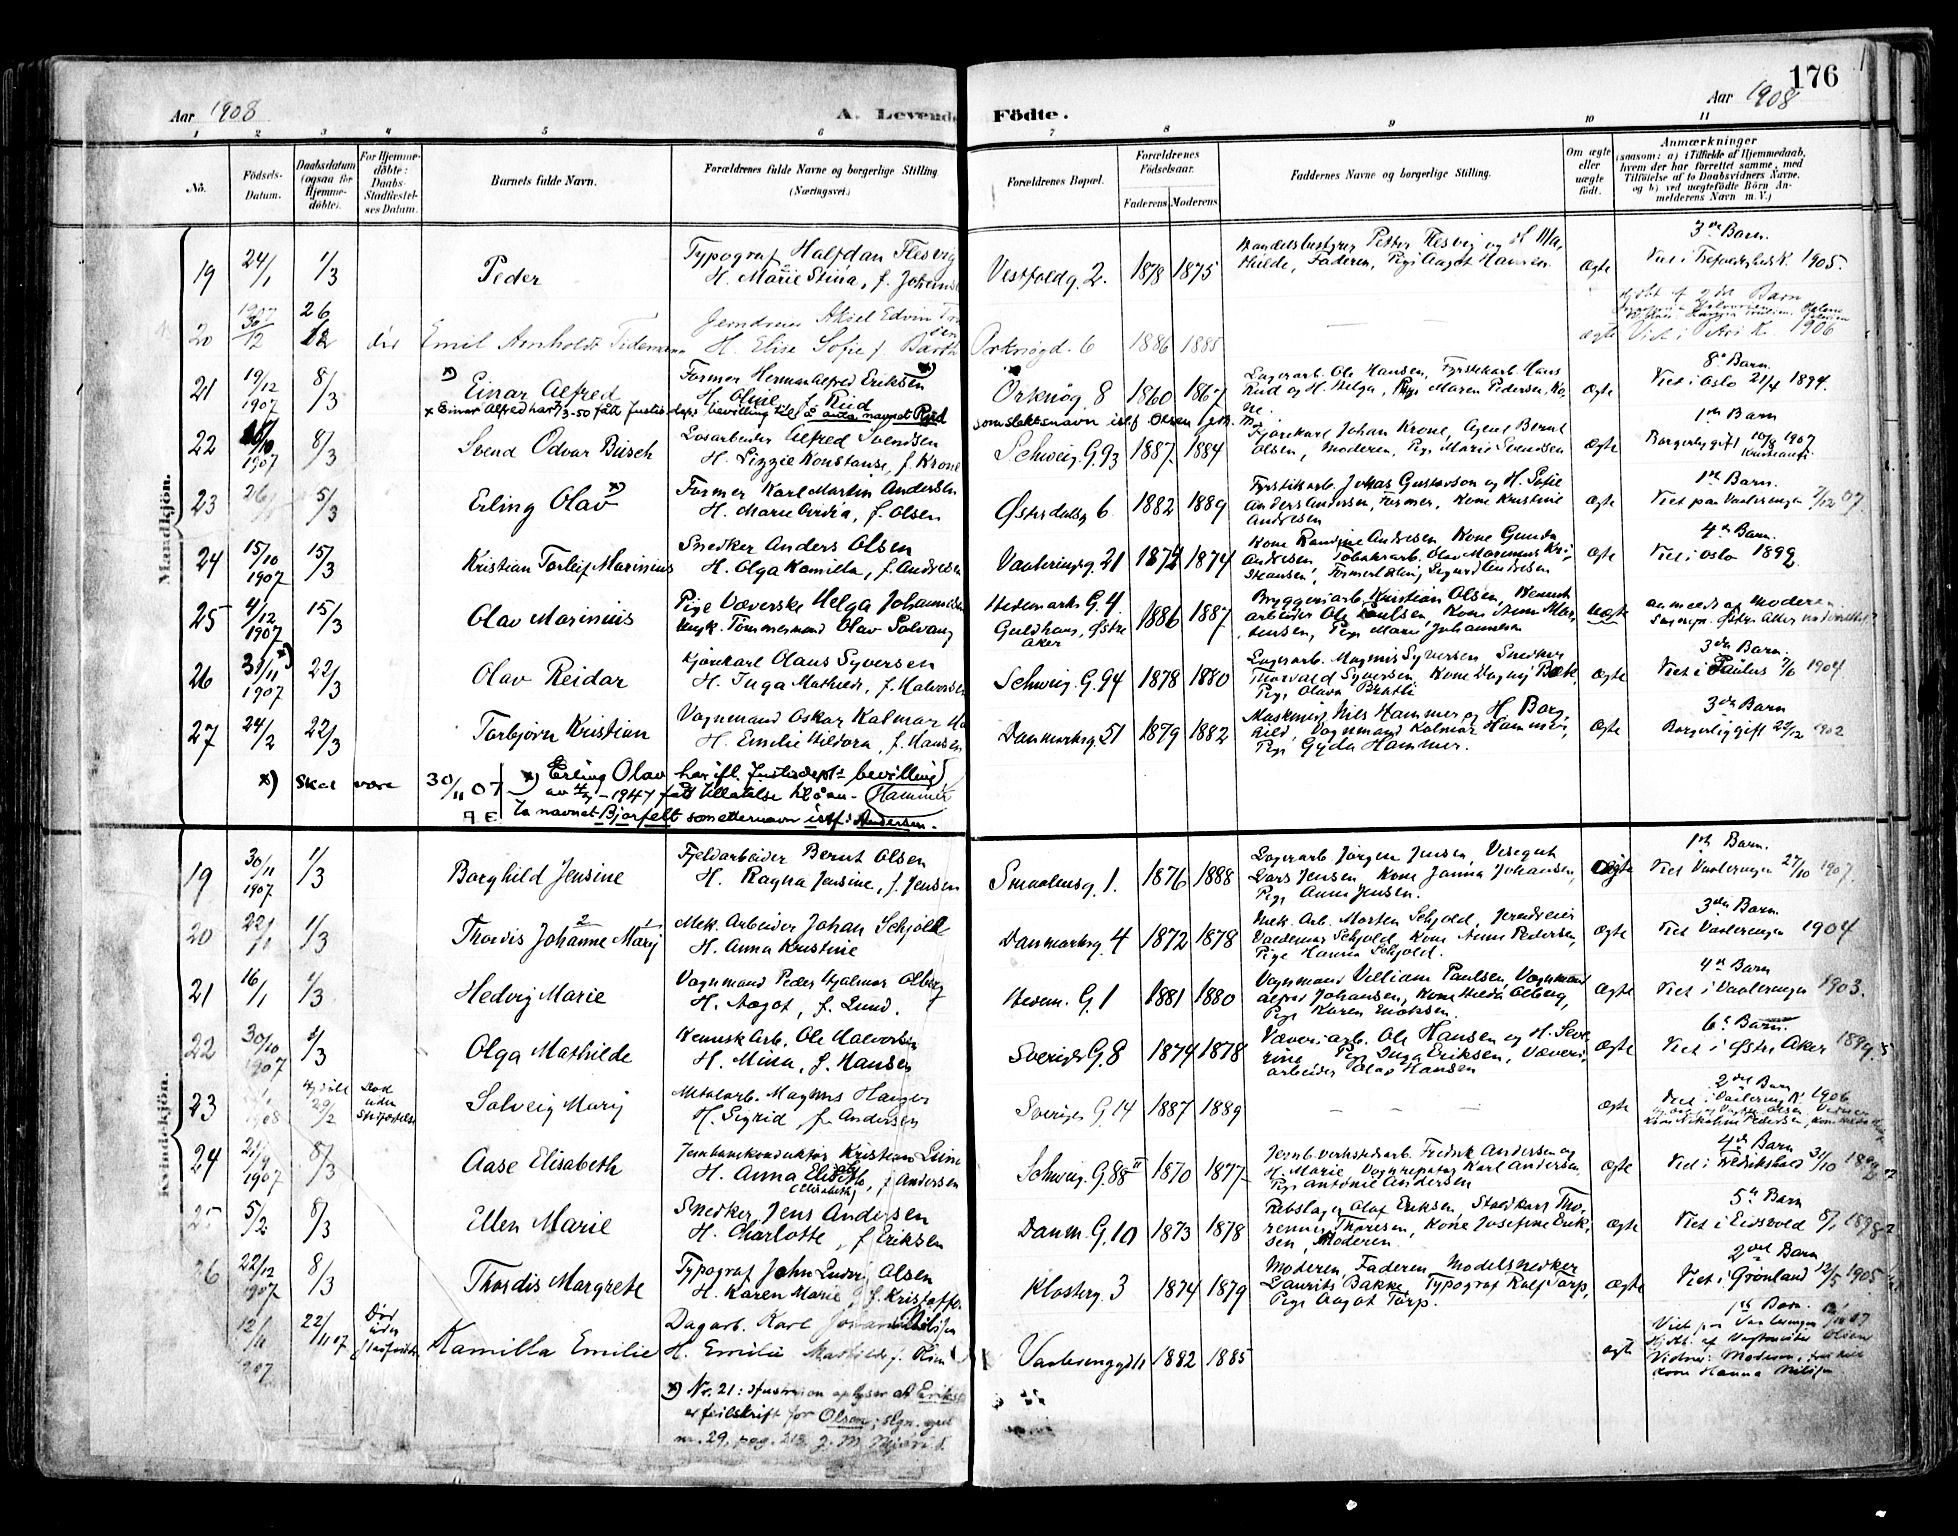 176
Aar 1908
A. Levende Födte.
Aar 1908
1 2 3 4 5 6 7 8 9 10 11
No.
Födsels-Datum.
Daabsdatum (ogsaa for Hjemme-döbte).
For Hjemme-döbte: Daabs-Stadfæstel-ses Datum.
Barnets fulde Navn.
Forældrenes fulde Navne og borgerlige Stilling.
(Næringsvei.)
Forældrenes Bopæl.
Forældrenes Födselsaar.
Faderens. Moderens.
Faddernes Navne og borgerlige Stilling.
Om ægte eller uægte födt.
Anmærkninger
(saasom: a) i Tilfælde af Hjemmedaab,
hvem der har forrettet samme, med
Tilföielse af to Daabsvidners Navne,
og b) ved uegtefödte Börn An-
melderens Navn m. V.)
Mandkjön.
19 24/1 1/3 Peder
Typograf Halfdan Flesvig
H. Marie Stina, f. Johans
Vestfoldg. 2. 1878 1875
Handelsbestyrer Petter Flesvig og H. Ma-
thilde, Faderen, Pige Aagot Hansen
Ægte
3die Barn.
Viet i Trefoldighedsk. 1905.
20 1907 30/12 26 død Emil Arnholdt Tidemann
Aksel Edvin
H. Elise Sofie f. Barth
Orknøgd. 6 1886 1885
ægte
2det Barn
Viet i Petri K. 1906
21 19/12 1907 8/3 x) Einar Alfred
Former Herman Alfred Eriksen x)
H. Oline, f. Rud
Orknøg 8 1860 1867
Lagerarb. Ole Hansen, Fyrstikarb. Hans
Rud og H. Helga, Pige Maren Pedersen, Ko-
ne.
Ægte
8de Barn.
Viet i Oslo 21/4 1894.
x Einar Alfred har 7/3-50 fått Justisdeps bevilling til å anta navnet Rud
som slektsnavn istf Olsen
22 1907 8/3 Svend Odvar Busch
Losarbeider Alfred Svendsen
H. Lizzie Konstanse, f. Krone
Schweig. G. 93 1887. 1884
Kjørekarl Johan Krone, Agent Bernt
Olsen, Moderen, Pige Marie Svendsen
Ægte
1ste Barn
Borgerlig gift 10/8 1907
23 26/1 5/3 Erling Olav x)
Former Karl Martin Andersen
H. Marie Ovidia, f. Olsen
Østerdalsg 6 1882 1889
Fyrstikarb. Johas Gustavson og H. Sofie
Anders Andersen, Former, Kone Kristine
Andresen
Ægte
1ste Barn.
Viet paa Vaalerengen 7/12 07.
24 15/10 1907 15/3 Kristian Torleif Marinius
Snedker Anders Olsen
H. Olga Kamilla, f. Andresen
Vaalerengg. 21 1872 1874
Kone Randine Andresen Kone Gunda
Andresen, Tobaksarb. Olav Marenius Kri-
stiansen, Formerlærling Sigurd Andresen
Ægte
4de Barn.
Viet i Oslo 1892
25 4/12 1907 15/3 Olav Marinius
Pige Væverske Helga Johannesen
Ungk. Tømmermand Olav Solvang
Hedemarks G. 4.
Guldhaug, Østre
Aker
1886 1887
Bryggeriarb. Kristian Olsen, Kemisk
arbeider Ole Paulsen Kone Anna Mar-
tensen, Pige Marie Johannesen
Uægte
anmeldt af Moderen
26 31/11 x) 1907 22/3 Olav Reidar
Kjørekarl Olaus Syversen
H. Inga Mathilde, f. Halvorsen
Schweig. G. 94 1878 1880
Lagerarb. Magnus Syversen, Snedker
Thorvald Syversen, Kone Dagny Bæk,
Pige Olava Bratli
Ægte
3die Barn.
Viet i Paulus 7/6 1904
27 24/2 22/3 Torbjørn Kristian
Vognmand Oskar Kalmar
H. Emilie Hildora, f. Hansen
Danmarksg. 51 1879 1882
Maskinist Nils Hammer og H. Borg-
hild, Vognmand Kalmar Hammer,
Pige Gyda Hammer.
Ægte
3die Barn
Borgerlig gift 22/12 1902
x) Skal være 30/11 07
x) Erling Olav har ifl. Justisdepts bevilling
av 1947 fått tillatelse til å an-
ta navnet Bjorfelt som etternavn istf: Andersen.
Hammer
Kvindekjön.
19 30/11 1907 1/3 Borghild Jensine
Fjeldarbeider Bernt Olsen
H. Ragna Jensine, f. Jensen
Smaalensg. 1. 1876 1888
Lagerarb Jørgen Jensen, Visegut
Lars Jensen, Kone Janna Johansen,
Pige Anna Jensen.
Ægte
1ste Barn.
Viet Vaalerengen 27/10 1907.
20 22/1 1/3 Thordis Johanne Mary
Mek. Arbeider Johan Schjold
H. Anna Kristine
Danmarksg. 4 1872 1878
Mek. Arb. Morten Schjold, Jerndreier
Valdemar Schjold, Kone Anna Pedersen,
Pige Hanna Schjold.
Ægte
3die Barn.
Viet Vaalerengen 1904
21 16/1 1/3 Hedvig Marie
Vognmand Peder Hjalmar Olberg
H. Aagot, f. Lund.
Hedem. G. 1 1881 1880
Vognmand Villiam Paulsen, Vognmand
Alfred Johansen, Kone Hilda Olberg,
Pige Karen Enoksen.
Ægte
4de Barn
Viet i Vaalerengen 1903.
22 30/10 1907 1/3 Olga Mathilde
Kemisk Arb. Ole Halvorsen
H. Mina, f. Hansen
Sveriges G. 8 1874 1878
Væveriarb. Ole Hansen og H. Seve-
rine, Pige Inga Eriksen, Væveri-
arbeider Olav Hansen
Ægte
6te Barn.
Viet i Østre Aker
23 1908 29/2 Død uden Stadfæstelse Solveig Mary
Metalarb. Magnus Hauger
H. Sigrid, f. Andersen
Sveriges G. 14 1887 1889
ægte
2det Barn
Viet i Vaalereng K. 1906
24 1907 8/3 Aase Elisabeth
Jernbanekonduktør Kristian
H. Anna Elisabeth, f Andersen
(Elisabeth)
Schweig. G. 88 II 1870 1877
Jernb. verkstedarb. Fredrik Andersen og
H. Marie, Vognreparatør Karl Andersen,
Pige Antonie Andersen
Ægte
4de Barn
Viet i Fredrikshald
25 5/2 8/3 Ellen Marie
Snedker Jens Andersen
H. Charlotte, f Eriksen
Danm. G. 10 1873 1878
Rebslager Olaf Eriksen, Stadkarl Tho-
rennius Thoresen, Kone Josefine Erik-
sen, Moderen.
Ægte
5te Barn
Viet i Eidsvold
26 22/12 1907 8/3 Thordis Margrete
Typograf John Ludvig Olsen
H. Karen Marie, f. Kristoffer
Klosterg. 3 1874 1879
Moderen, Faderen, Modelsnedker
Laurits Bakke, Typograf Ralf Tarp,
Pige Aagot Tarp.
Ægte
2det Barn
Viet i Grønland 12/5 1905
1907 22/11 07 Død uden Kamilla Emilie
Dagarb. Karl Johan Nilsen
H. Emilie Mathilde f.
Vaalerenggd 1882 1885
ægt
1ste Barn.
Viet paa Vaalerengen
Hjdbt. af Vagtmester Olsen
Vidner: Moderen,
Kone Hanna Nilsen
x) Nr. 21: Hustruen oplyser at Eriksen
er feilskrift for Olsen;
nr. 29, pag. 213